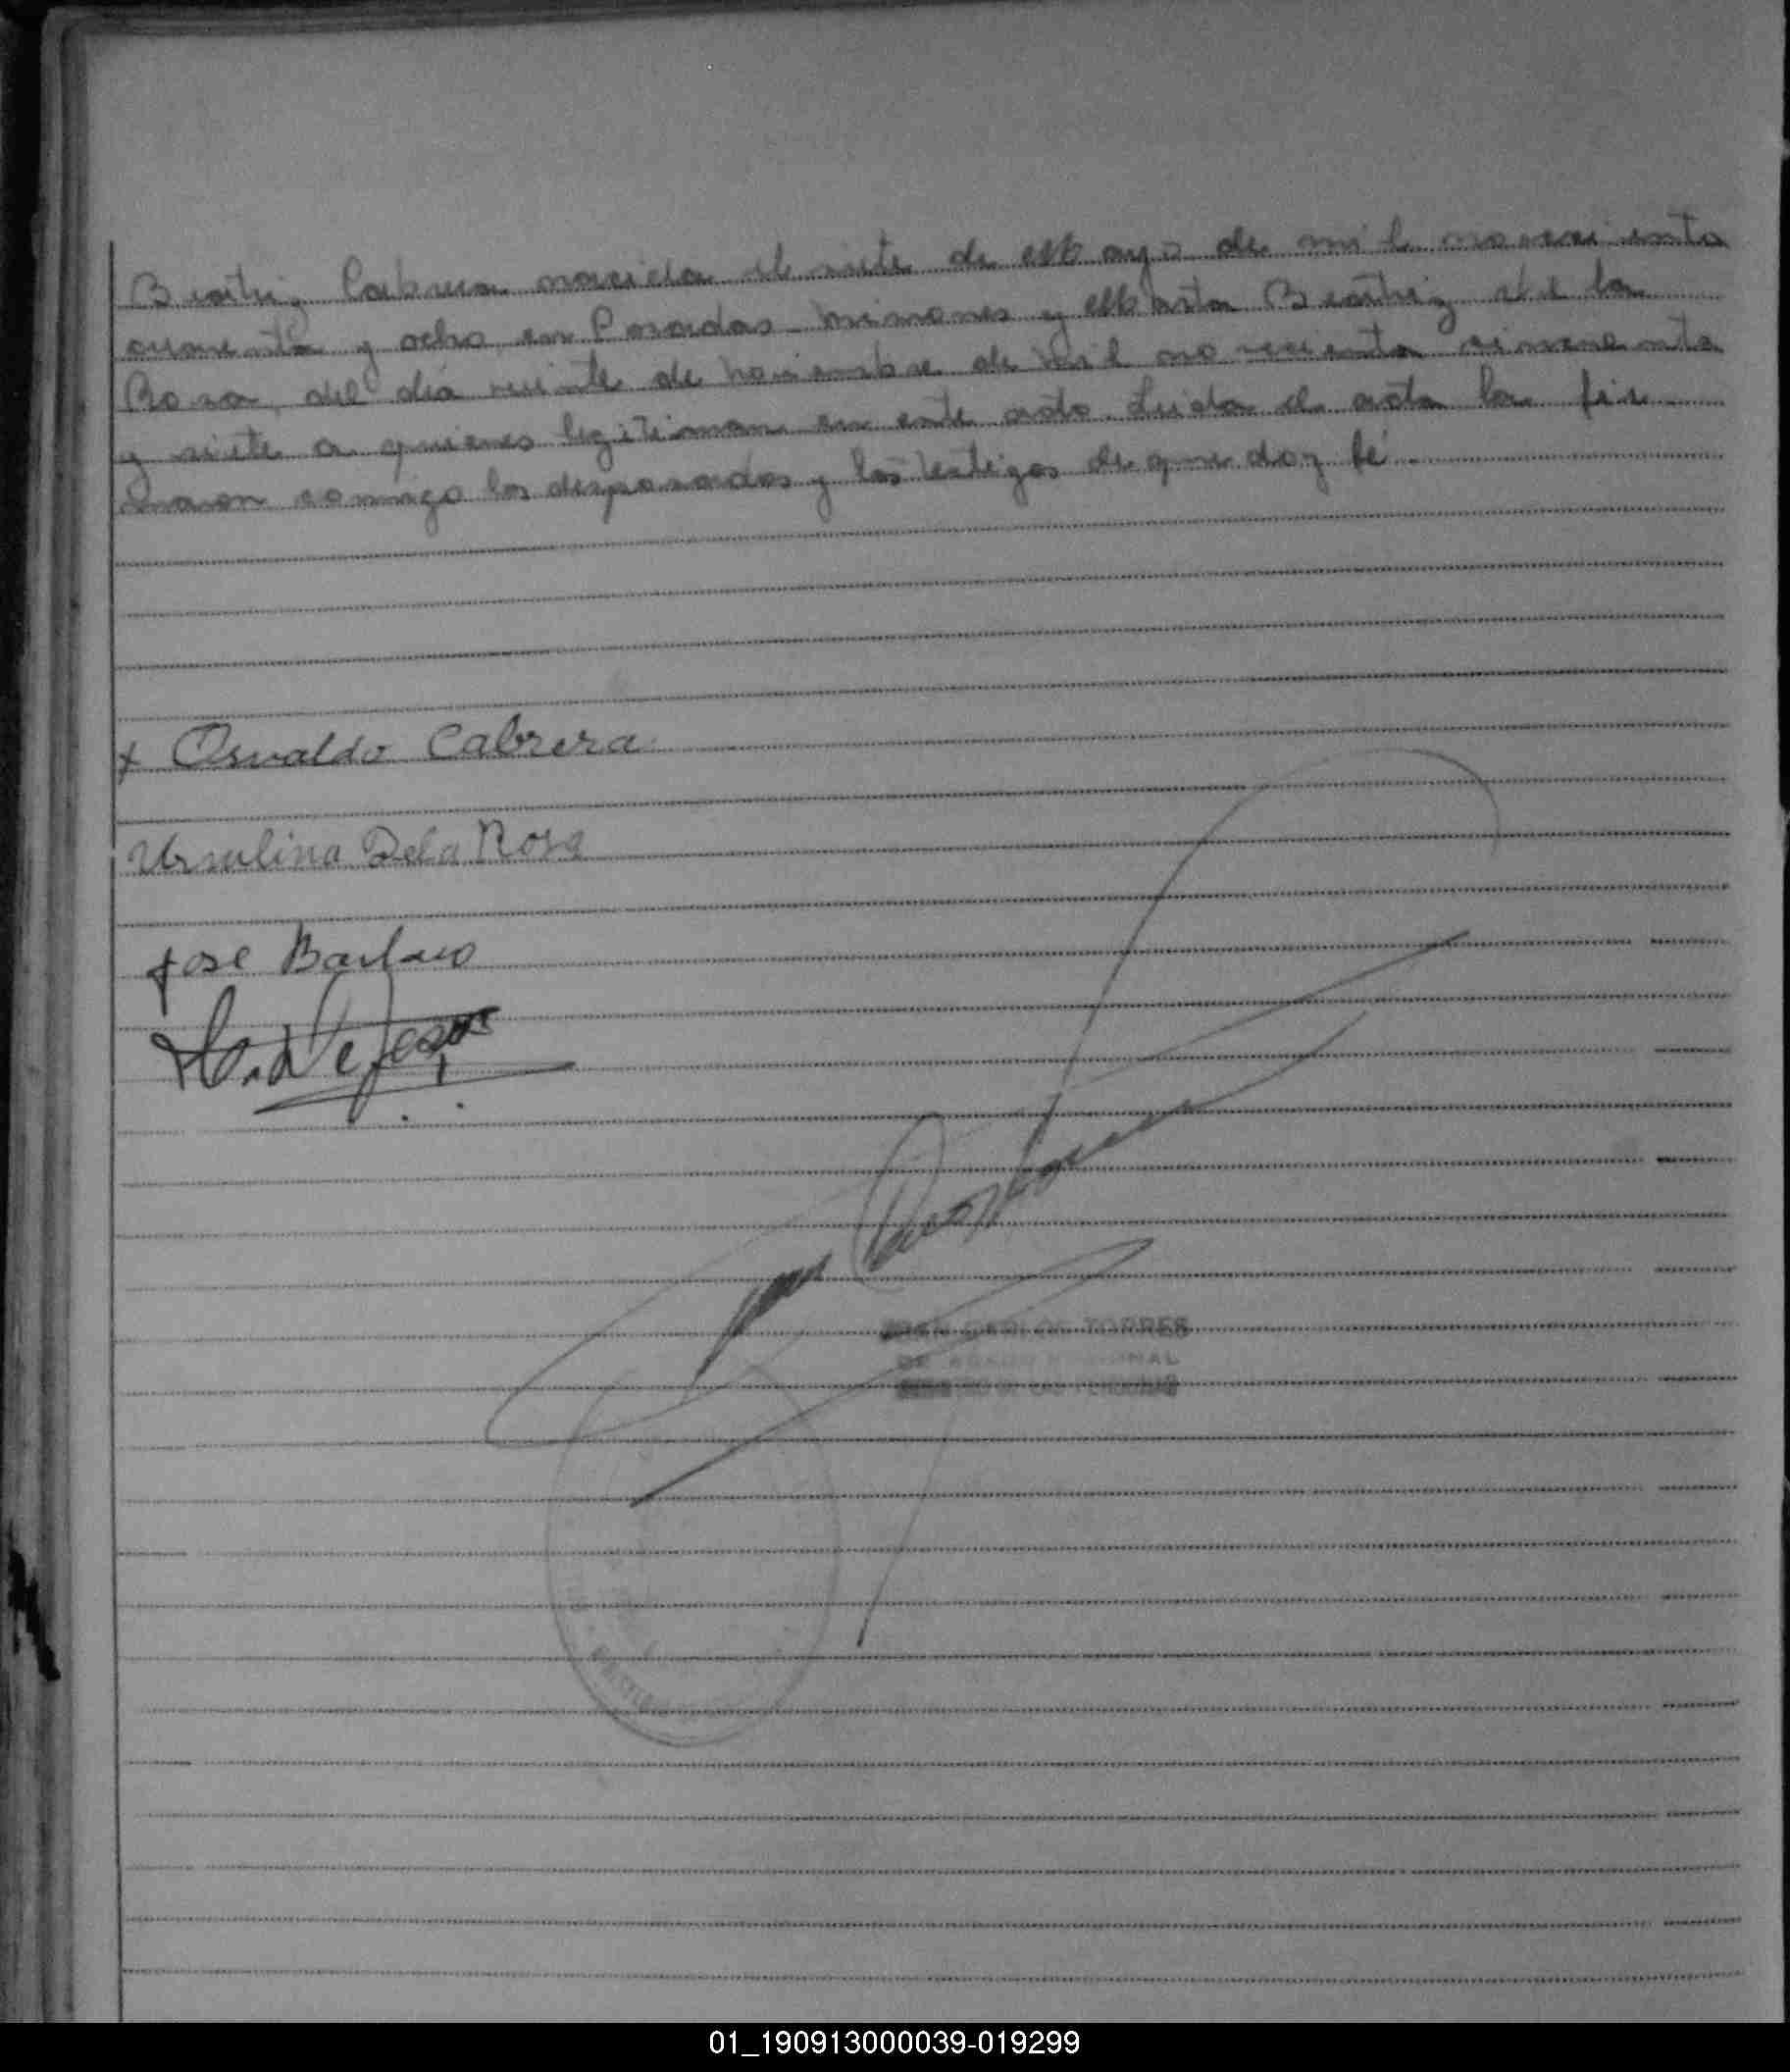 Beatriz Cabrera nacida el siete de Mayo de mil novecientos
cuarenta y ocho en Posadas Misiones y Marta Beatriz de la
Rosa, del día veinte de Noviembre de mil novecientos cincuenta
y siete a quienes legitiman en este acto. Leida el acta la fir
maron conmigo los desposados y los testigos de que doy fé
x Osvaldo Cabrera
Ursulina De la Rosa
Jose
JUAN CARLOS TORRES
01_190913000039-019299